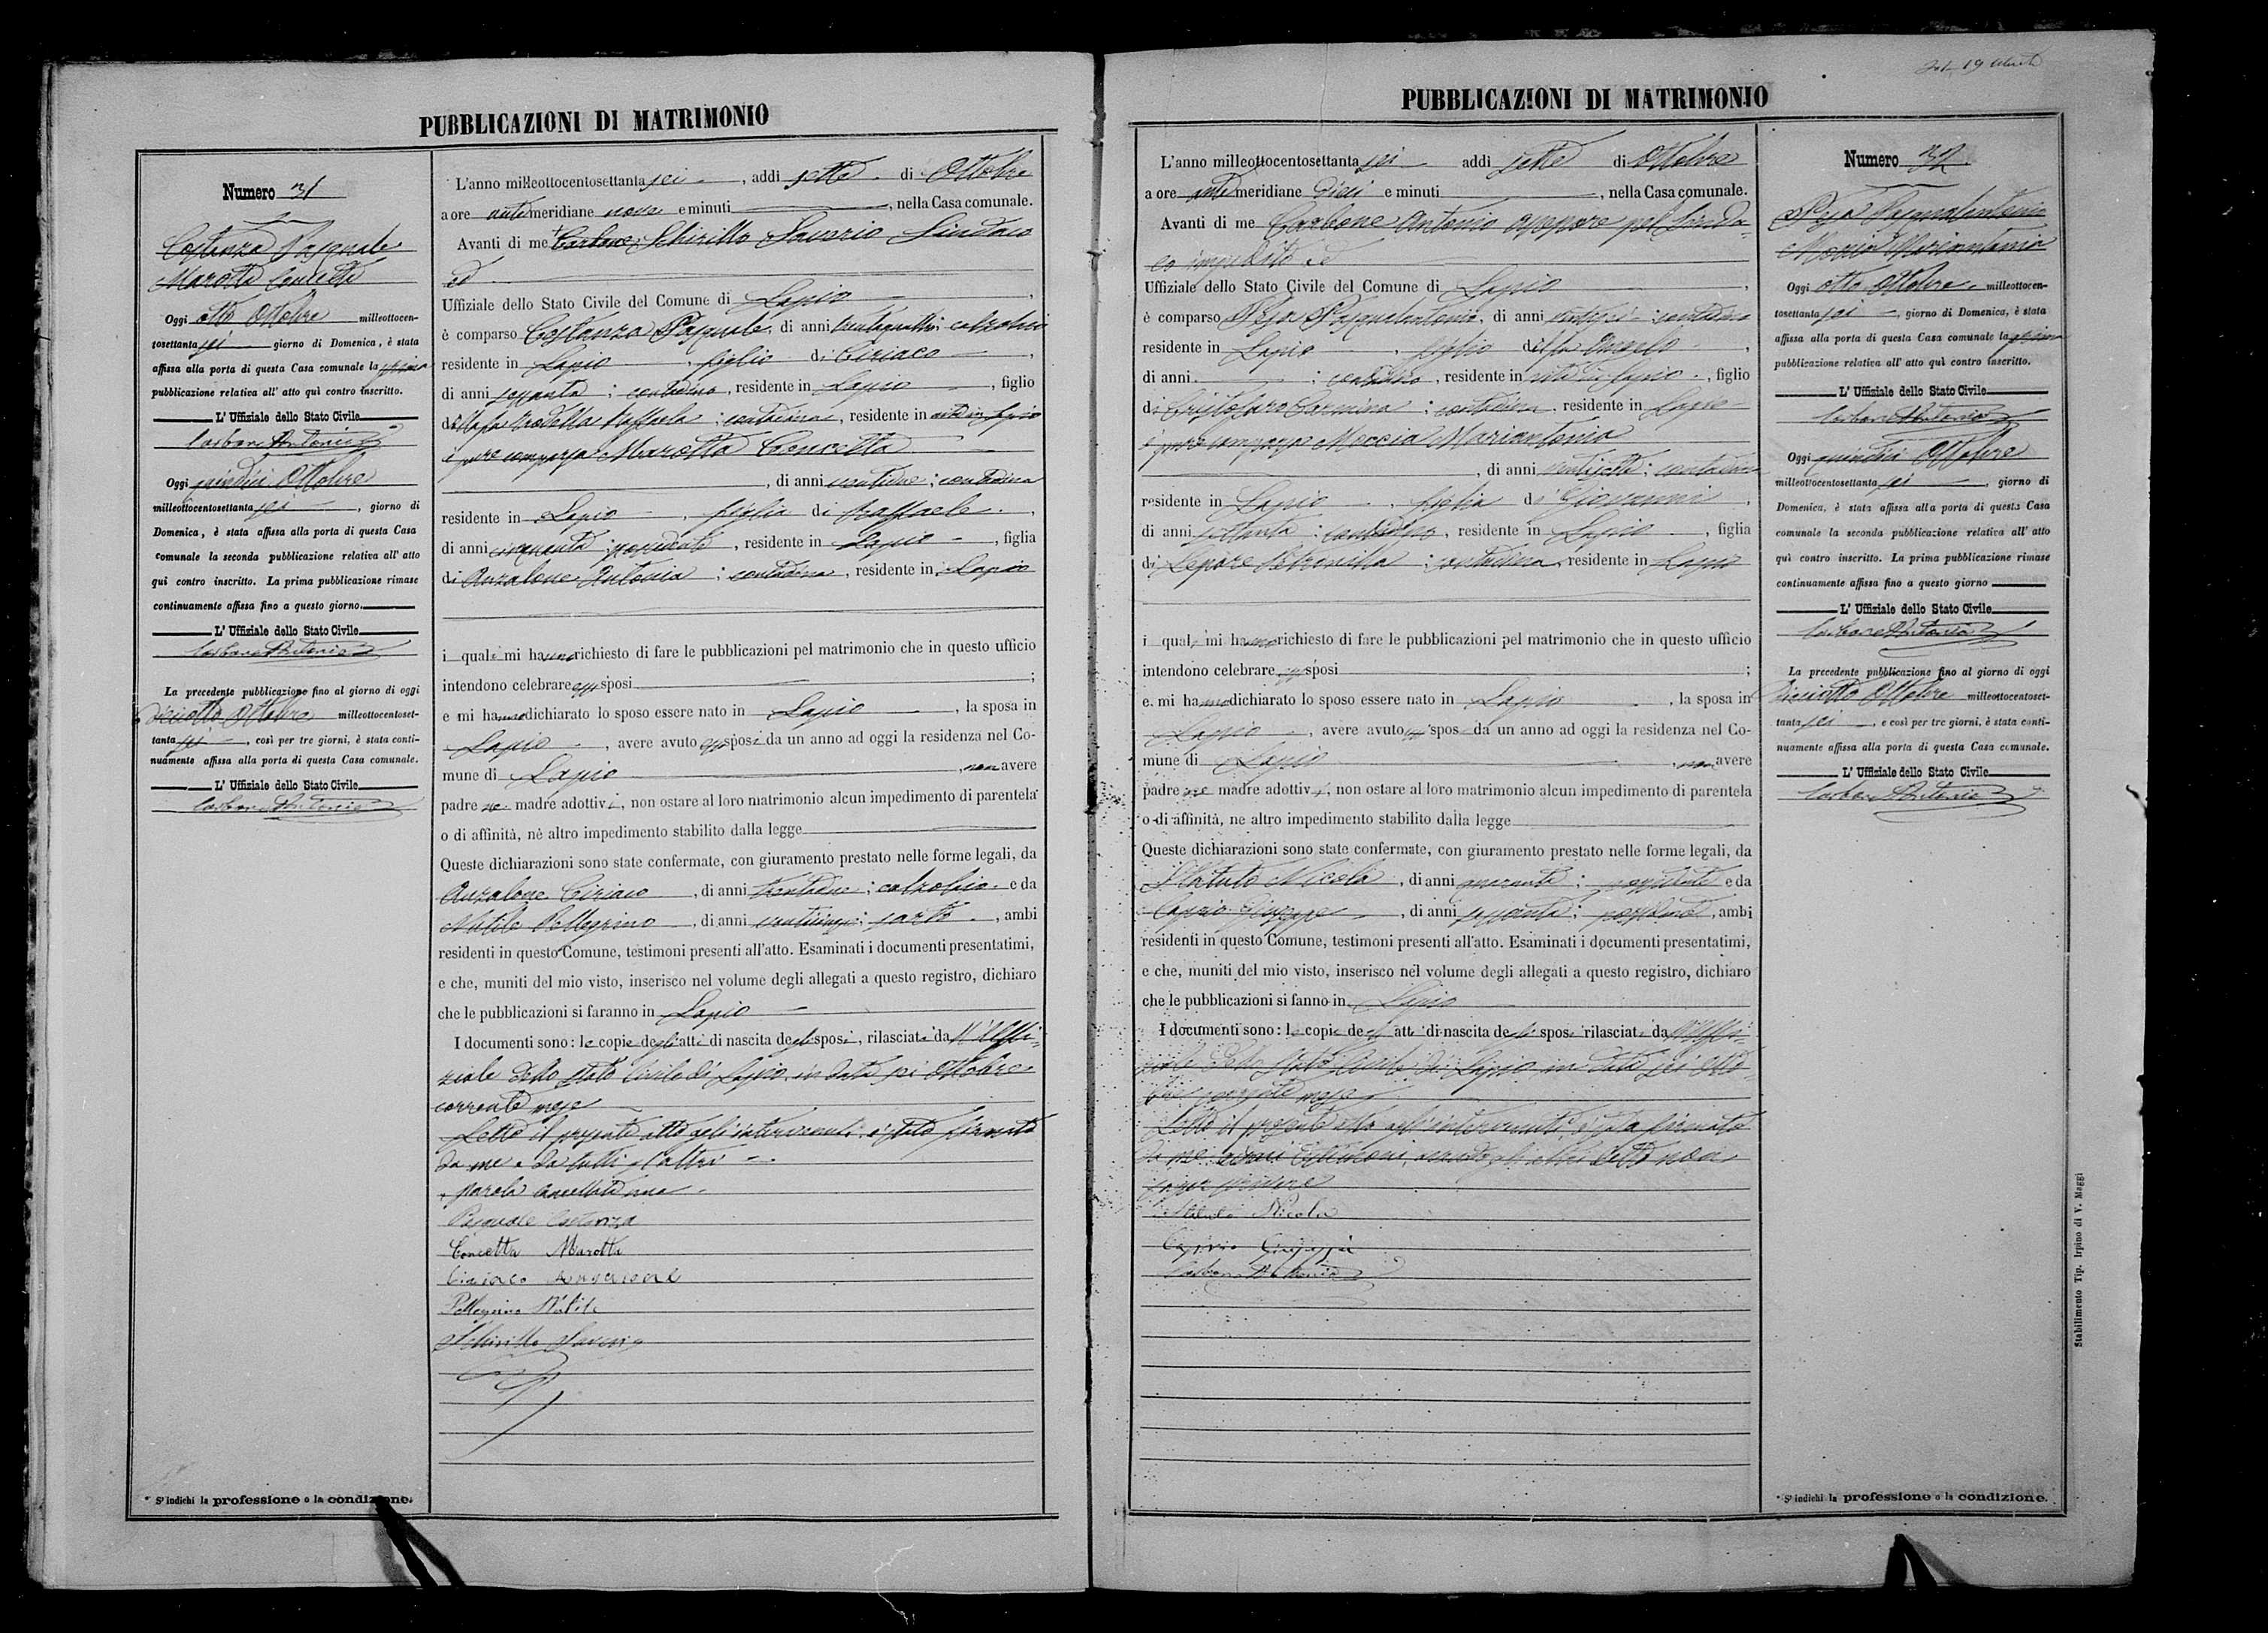 PUBBLICAZIONI DI MATRIMONIO
Numero 31
Costanza Pasquale
Marotta Concetta
Oggi otto Ottobre milleottocen-
tosettanta sei giorno di Domenica, è stata
affissa alla porta di questa Casa comunale la prima
pubblicazione relativa all' atto quì contro inscritto.
L' Uffiziale dello Stato Civile
Carbone Antonio
Oggi quindici Ottobre
milleottocentosettanta sei, giorno di
Domenica, è stata affissa alla porta di questa Casa
comunale la seconda pubblicazione relativa all' atto
qui contro inscritto. La prima pubblicazione rimase
continuamente affissa fino a questo giorno.
L' Uffiziale dello Stato Civile
Carbone Antonio
La precedente pubblicazione fino al giorno di oggi
diciotto Ottobre milleottocentoset-
tanta sei, così per tre giorni, è stata conti-
nuamente affissa alla porta di questa Casa comunale.
L' Uffiziale dello Stato Civile
Carbone Antonio
* S' indichi la professione o la condizione.
L'anno milleottocentosettanta sei, addì sette di Ottobre
a ore antimeridiane nove e minuti, nella Casa comunale.
Avanti di me Carbone Schirillo Saverio Sindaco
ed
Uffiziale dello Stato Civile del Comune di Lapio,
è comparso Costanza Pasquale, di anni ventiquattro: calzolaio
residente in Lapio, figlio di Ciriaco,
di anni sessanta; contadino, residente in Lapio, figlio
contadina, residente in vita in Lapio
è pure comparsa Marotta Concetta
, di anni ventidue; contadina
residente in Lapio, figlia di Raffaele,
di anni cinquanta; possidente, residente in Lapio, figlia
di Anzalone Antonia; contadina, residente in Lapio
i quali mi hanno richiesto di fare le pubblicazioni pel matrimonio che in questo ufficio
intendono celebrare essi sposi;
e mi hanno dichiarato lo sposo essere nato in Lapio, la sposa in
Lapio, avere avuto essi sposi da un anno ad oggi la residenza nel Co-
mune di Lapio, non avere
padre ne madre adottivi, non ostare al loro matrimonio alcun impedimento di parentela
o di affinità, nè altro impedimento stabilito dalla legge
Queste dichiarazioni sono state confermate, con giuramento prestato nelle forme legali, da
Anzalone Ciriaco, di anni trentadue; calzolaio e da
Natile Pellegrino, di anni venticinque; sarto, ambi
residenti in questo Comune, testimoni presenti all'atto. Esaminati i documenti presentatimi,
e che, muniti del mio visto, inserisco nel volume degli allegati a questo registro, dichiaro
che le pubblicazioni si faranno in Lapio
I documenti sono: le copie degli atti di nascita degli sposi, rilasciate da ll'Uffi-
ziale dello Stato Civile di Lapio in data sei Ottobre
corrente mese
Letto il presente atto agli intervenuti, è stato firmato
da me e da tutti gl'altri
parola cancellata una
Pasquale Costanza
Concetta Marotta
Ciriaco Anzalone
Pellegrino Natile
Schirillo Saverio
PUBBLICAZIONI DI MATRIMONIO
L'anno milleottocentosettanta sei addì sette di Ottobre
a ore antimeridiane dieci e minuti, nella Casa comunale.
Avanti di me Carbone Antonio assessore pel Sinda-
co impedito ed
Uffiziale dello Stato Civile del Comune di Lapio,
è comparso Pasqualantonio, di anni ventisei; contadino
residente in Lapio, figlio del fu Angelo,
di anni; contadino, residente in vita in Lapio, figlio
di Cristofaro Carmina; contadina, residente in Lapio
è pure comparsa Moccia Mariantonia
, di anni ventisette; contadina
residente in Lapio, figlia di Giovanni,
di anni settanta; contadino, residente in Lapio, figlia
di Lepore Petronilla; contadina, residente in Lapio
i quali mi hanno richiesto di fare le pubblicazioni pel matrimonio che in questo ufficio
intendono celebrare essi sposi;
e mi hanno dichiarato lo sposo essere nato in Lapio, la sposa in
Lapio, avere avuto essi sposi da un anno ad oggi la residenza nel Co-
mune di Lapio, non avere
padre ne madre adottivi, non ostare al loro matrimonio alcun impedimento di parentela
o di affinità, ne altro impedimento stabilito dalla legge
Queste dichiarazioni sono state confermate, con giuramento prestato nelle forme legali, da
Nicola, di anni quaranta; possidente e da
Giuseppe, di anni sessanta; possidente, ambi
residenti in questo Comune, testimoni presenti all'atto. Esaminati i documenti presentatimi,
e che, muniti del mio visto, inserisco nel volume degli allegati a questo registro, dichiaro
che le pubblicazioni si fanno in Lapio
I documenti sono: le copie degli atti di nascita degli sposi rilasciate da ll'Uffi-
ziale dello Stato Civile di Lapio in data sei Otto-
bre corrente mese
Letto il presente atto agli intervenuti, è stato firmato
da me testimoni, avendo gli altri detto non
saper scrivere
Nicola
Giuseppe
Carbone Antonio
Numero 32
Pasqualantonio
Moccia Mariantonia
Oggi otto Ottobre milleottocen-
tosettanta sei, giorno di Domenica, è stata
affissa alla porta di questa Casa comunale la prima
pubblicazione relativa all' atto quì contro inscritto.
L' Uffiziale dello Stato Civile
Carbone Antonio
Oggi quindici Ottobre
milleottocentosettanta sei, giorno di
Domenica, è stata affissa alla porta di questa Casa
comunale la seconda pubblicazione relativa all' atto
quì contro inscritto. La prima pubblicazione rimase
continuamente affissa fino a questo giorno
L' Uffiziale dello Stato Civile
Carbone Antonio
La precedente pubblicazione fino al giorno di oggi
diciotto Ottobre milleottocentoset-
tanta sei, e così per tre giorni, è stata conti-
nuamente affissa alla porta di questa Casa comunale.
L' Uffiziale dello Stato Civile
Carbone Antonio
* S' indichi la professione o la condizione.
Stabilimento Tip. Irpino di V. Maggi